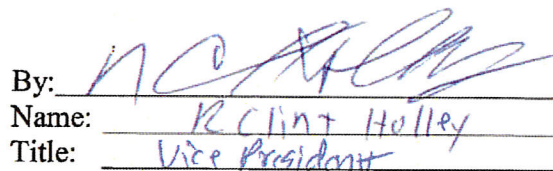 By:
Name: R Clint Holley
Title: Vice President